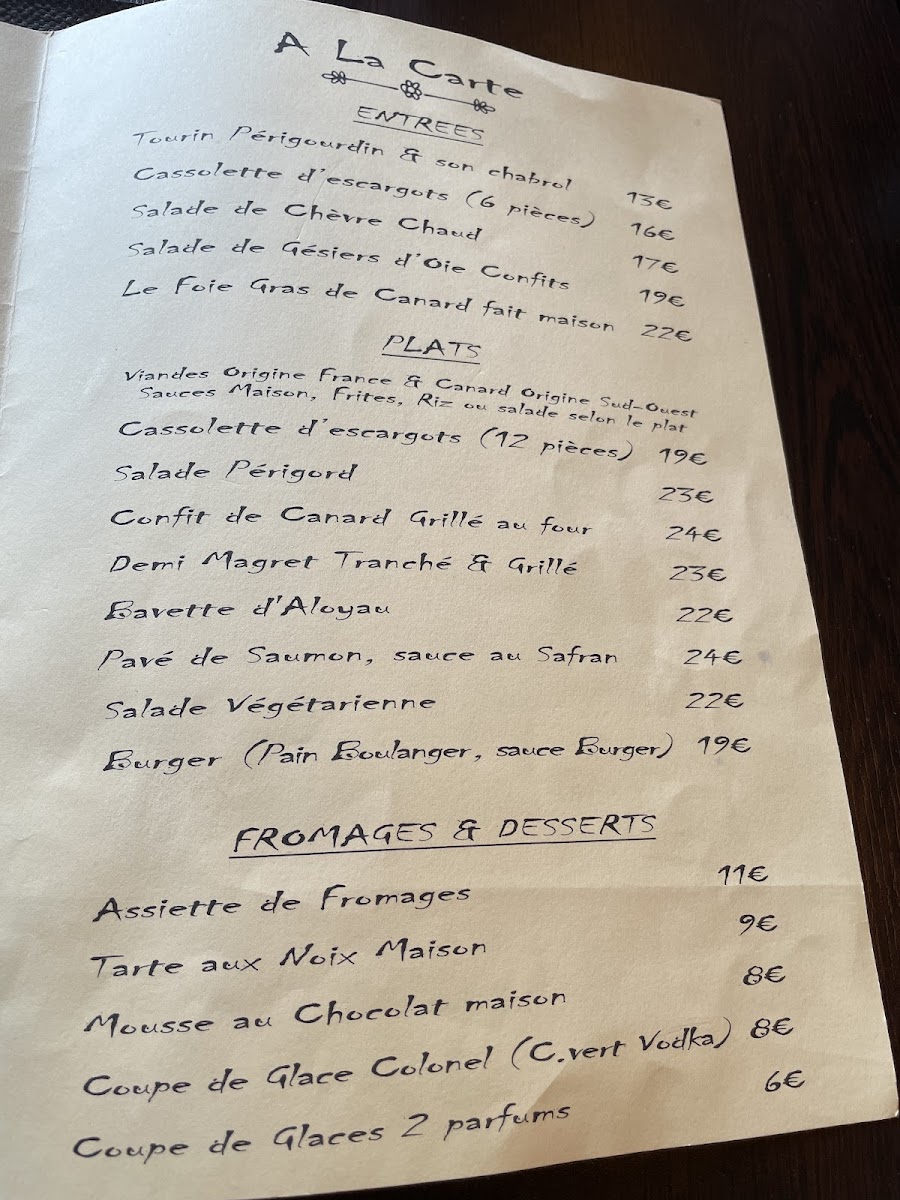 A La Carte
ENTREES
Tourin Périgourdin & son chabrol 13€
Cassolette d'escargots (6 pièces) 16€
Salade de Chèvre Chaud 17€
Salade de Gésiers d'Oie Confits 19€
Le Foie Gras de Canard fait maison 22€
PLATS
Viandes Origine France & Canard Origine Sud-Ouest
Sauces Maison, Frites, Riz ou salade selon le plat
Cassolette d'escargots (12 pièces) 19€
Salade Périgord 23€
Confit de Canard Grillé au four 24€
Demi Magret Tranché & Grillé 23€
Bavette d'Aloyau 22€
Pavé de Saumon, sauce au Safran 24€
Salade Végétarienne 22€
Burger (Pain Boulanger, sauce Burger) 19€
FROMAGES & DESSERTS
Assiette de Fromages 11€
Tarte aux Noix Maison 9€
Mousse au Chocolat maison 8€
Coupe de Glace Colonel (C.vert Vodka) 8€
Coupe de Glaces 2 parfums 6€